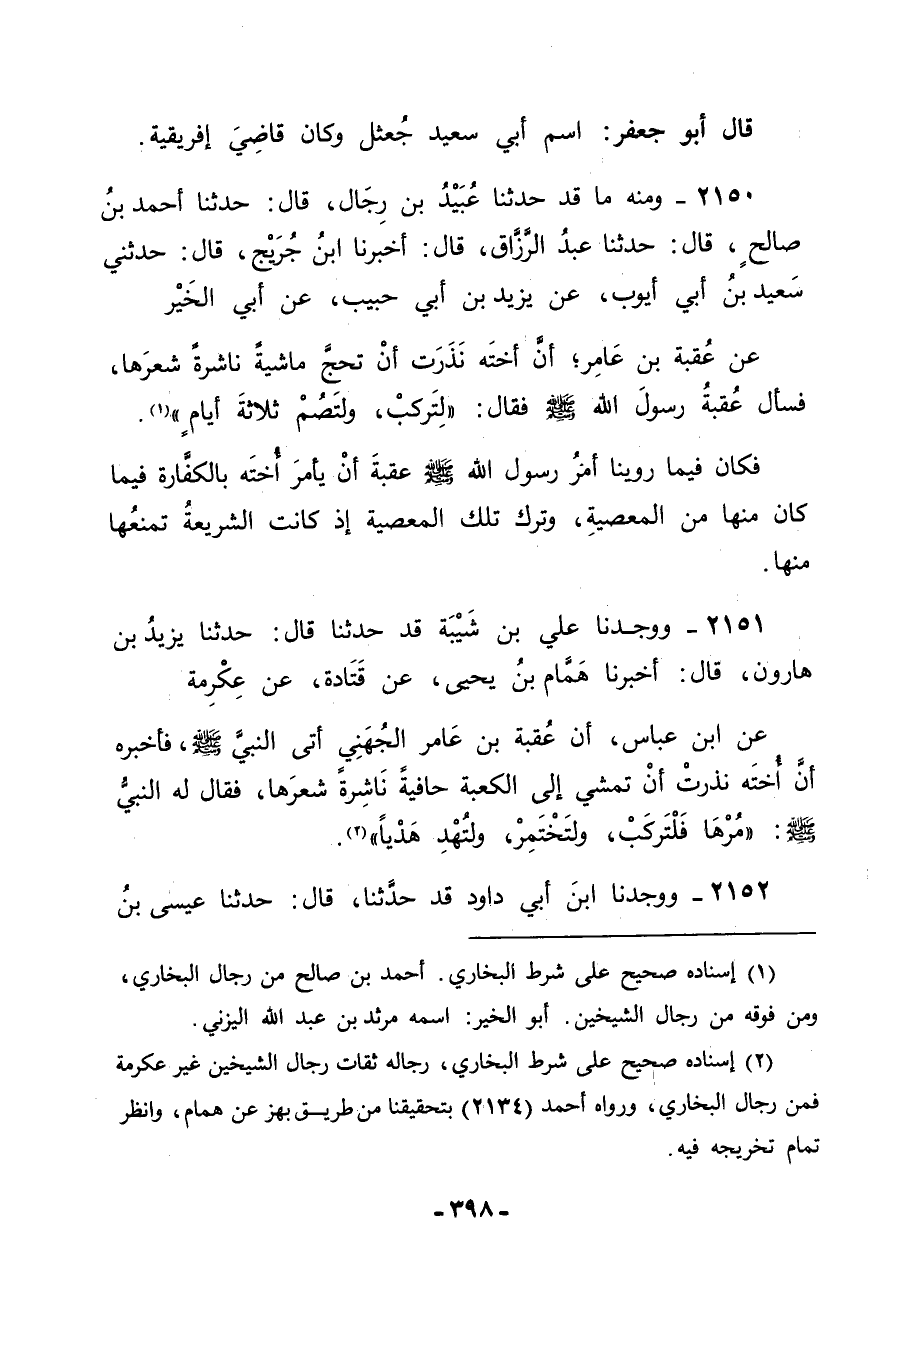 قال أبو جعفر: اسم أبي سعيد جُعثل وكان قاضِيَ إفريقية.
٢١٥٠ ـ ومنه ما قد حدثنا عُبَيْدُ بن رِجَال، قال: حدثنا أحمد بنُ
صالحٍ، قال: حدثنا عبدُ الرَّزَّاق، قال: أخبرنا ابنُ جُرَيْج، قال: حدثني
سَعيد بنُ أبي أيوب، عن يزيد بن أبي حبيب، عن أبي الخَيْر
عن عُقبة بن عَامِر؛ أنَّ أختَه نَذَرَت أنْ تحجَّ ماشيةً ناشرةً شعرَها،
فسأل عُقبةُ رسولَ الله ﷺ فقال: «لِتَركبْ، ولتَصُمْ ثلاثةَ أيامٍ»(١).
فكان فيما روينا أمرُ رسول الله ﷺ عقبةَ أنْ يأمرَ أُختَه بالكفَّارة فيما
كان منها من المعصيةِ، وترك تلك المعصية إذ كانت الشريعةُ تمنعُها
منها.
٢١٥١ ـ ووجدنا علي بن شَيْبَة قد حدثنا قال: حدثنا يزيدُ بن
هارون، قال: أخبرنا هَمَّام بنُ يحيى، عن قَتَادة، عن عِكْرِمة
عن ابن عباس، أن عُقبة بن عَامر الجُهَنِي أتى النبيَّ ﷺ، فأخبره
أنَّ أُختَه نذرتْ أنْ تمشي إلى الكعبة حافيةً نَاشِرةً شعرَها، فقال له النبيُّ
ﷺ: «مُرْهَا فَلْتَركَبْ، ولتَخْتَمِرْ، ولتُهْدِ هَدْياً»(٢).
٢١٥٢ ـ ووجدنا ابنَ أبي داود قد حدَّثنا، قال: حدثنا عيسى بنُ
(١) إسناده صحيح على شرط البخاري. أحمد بن صالح من رجال البخاري،
ومن فوقه من رجال الشيخين. أبو الخير: اسمه مرثد بن عبد الله اليزني.
(٢) إسناده صحيح على شرط البخاري، رجاله ثقات رجال الشيخين غير عكرمة
فمن رجال البخاري، ورواه أحمد (٢١٣٤) بتحقيقنا من طريق بهز عن همام، وانظر
تمام تخريجه فيه.
ـ ٣٩٨ ـ